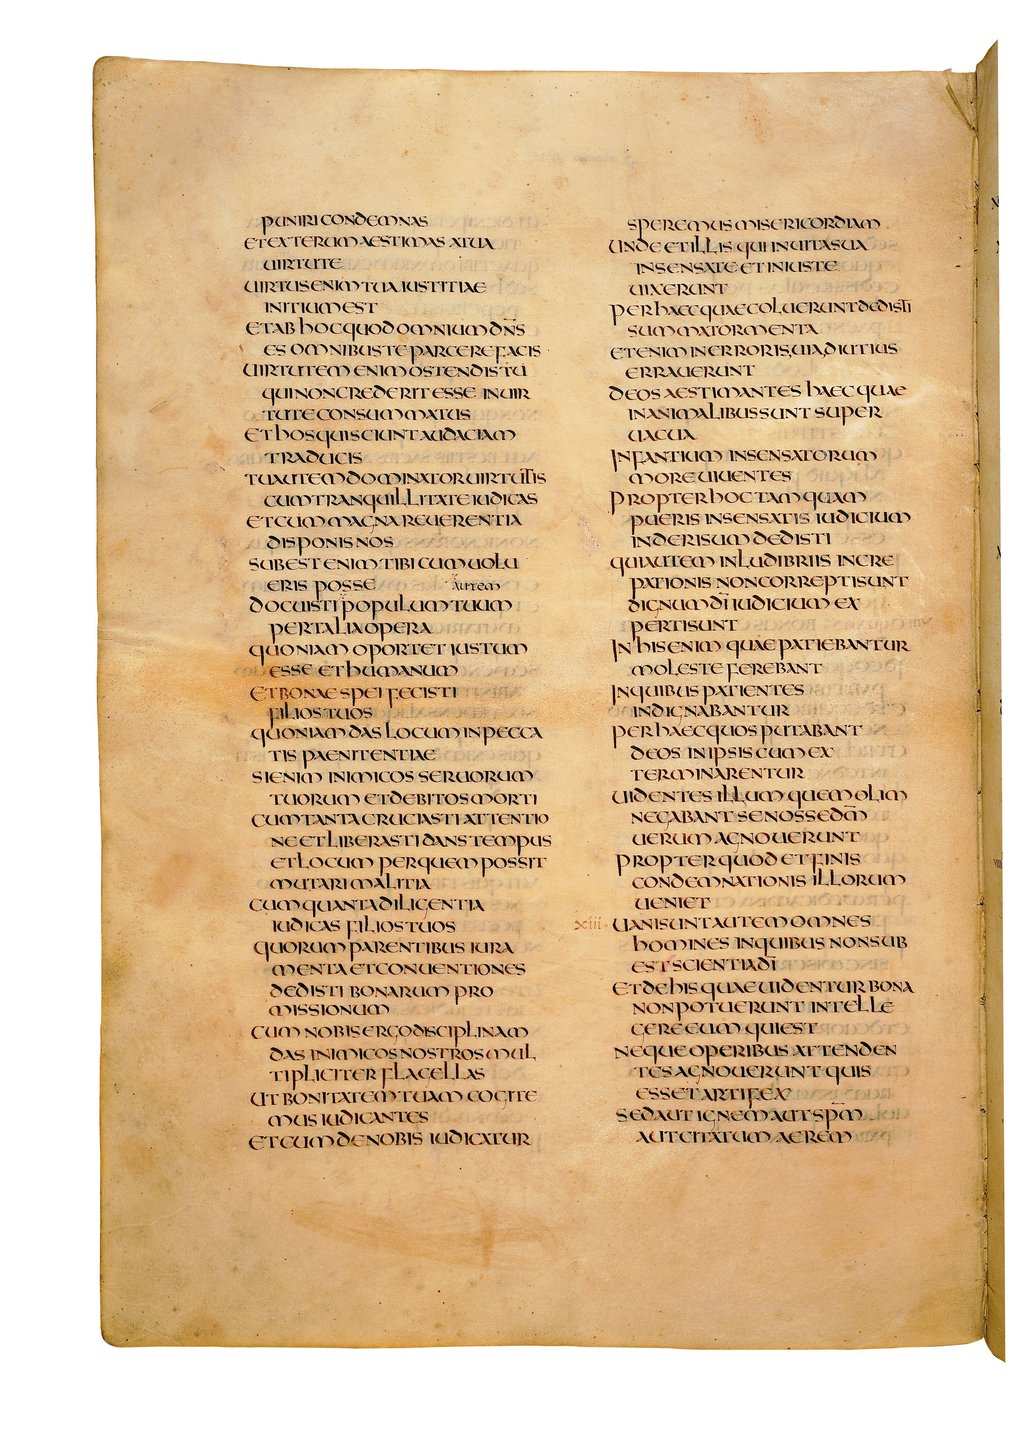 PUNIRI CONDEMNAS
ET EXTERUM AESTIMAS A TUA
UIRTUTE
UIRTUS ENIM TUA IUSTITIAE
INITIUM EST
ET AB HOC QUOD OMNIUM DN̅S
ES OMNIBUS TE PARCERE FACIS
UIRTUTEM ENIM OSTENDIS TU
QUI NON CREDERIT ESSE IN UIR
TUTE CONSUMMATUS
ET HOS QUI SCIUNT AUDACIAM
TRADUCIS
TU AUTEM DOMINATOR UIRTUTIS
CUM TRANQUILLITATE IUDICAS
ET CUM MAGNA REUERENTIA
DISPONIS NOS
SUBEST ENIM TIBI CUM UOLU
ERIS POSSE
AUTEM
DOCUISTI POPULUM TUUM
PER TALIA OPERA
QUONIAM OPORTET IUSTUM
ESSE ET HUMANUM
ET BONAE SPEI FECISTI
FILIOS TUOS
QUONIAM DAS LOCUM IN PECCA
TIS PAENITENTIAE
SI ENIM INIMICOS SERUORUM
TUORUM ET DEBITOS MORTI
CUM TANTA CRUCIASTI ATTENTIO
NE ET LIBERASTI DANS TEMPUS
ET LOCUM PER QUEM POSSIT
MUTARI MALITIA
CUM QUANTA DILIGENTIA
IUDICAS FILIOS TUOS
QUORUM PARENTIBUS IURA
MENTA ET CONUENTIONES
DEDISTI BONARUM PRO
MISSIONUM
CUM NOBIS ERGO DISCIPLINAM
DAS INIMICOS NOSTROS MUL
TIPLICITER FLAGELLAS
UT BONITATEM TUAM COGITE
MUS IUDICANTES
ET CUM DE NOBIS IUDICATUR
SPEREMUS MISERICORDIAM
UNDE ET ILLIS QUI IN UITA SUA
INSENSATE ET INIUSTE
UIXERUNT
PER HAEC QUAE COLUERUNT DEDISTI
SUMMA TORMENTA
ETENIM IN ERRORIS UIA DIUTIUS
ERRAUERUNT
DEOS AESTIMANTES HAEC QUAE
IN ANIMALIBUS SUNT SUPER
UACUA
INFANTIUM INSENSATORUM
MORE UIUENTES
PROPTER HOC TAMQUAM
PUERIS INSENSATIS IUDICIUM
IN DERISUM DEDISTI
QUI AUTEM IN LUDIBRIIS INCRE
PATIONIS NON CORREPTI SUNT
DIGNUM DI̅ IUDICIUM EX
PERTI SUNT
IN HIS ENIM QUAE PATIEBANTUR
MOLESTE FEREBANT
IN QUIBUS PATIENTES
INDIGNABANTUR
PER HAEC QUOS PUTABANT
DEOS IN IPSIS CUM EX
TERMINARENTUR
UIDENTES ILLUM QUEM OLIM
NEGABANT SE NOSSE DM̅
UERUM AGNOUERUNT
PROPTER QUOD ET FINIS
CONDEMNATIONIS ILLORUM
UENIET
XIII UANI SUNT AUTEM OMNES
HOMINES IN QUIBUS NON SUB
EST SCIENTIA DI̅
ET DE HIS QUAE UIDENTUR BONA
NON POTUERUNT INTELLE
GERE EUM QUI EST
NEQUE OPERIBUS ATTENDEN
TES AGNOUERUNT QUIS
ESSET ARTIFEX
SED AUT IGNEM AUT SPM̅
AUT CITATUM AEREM